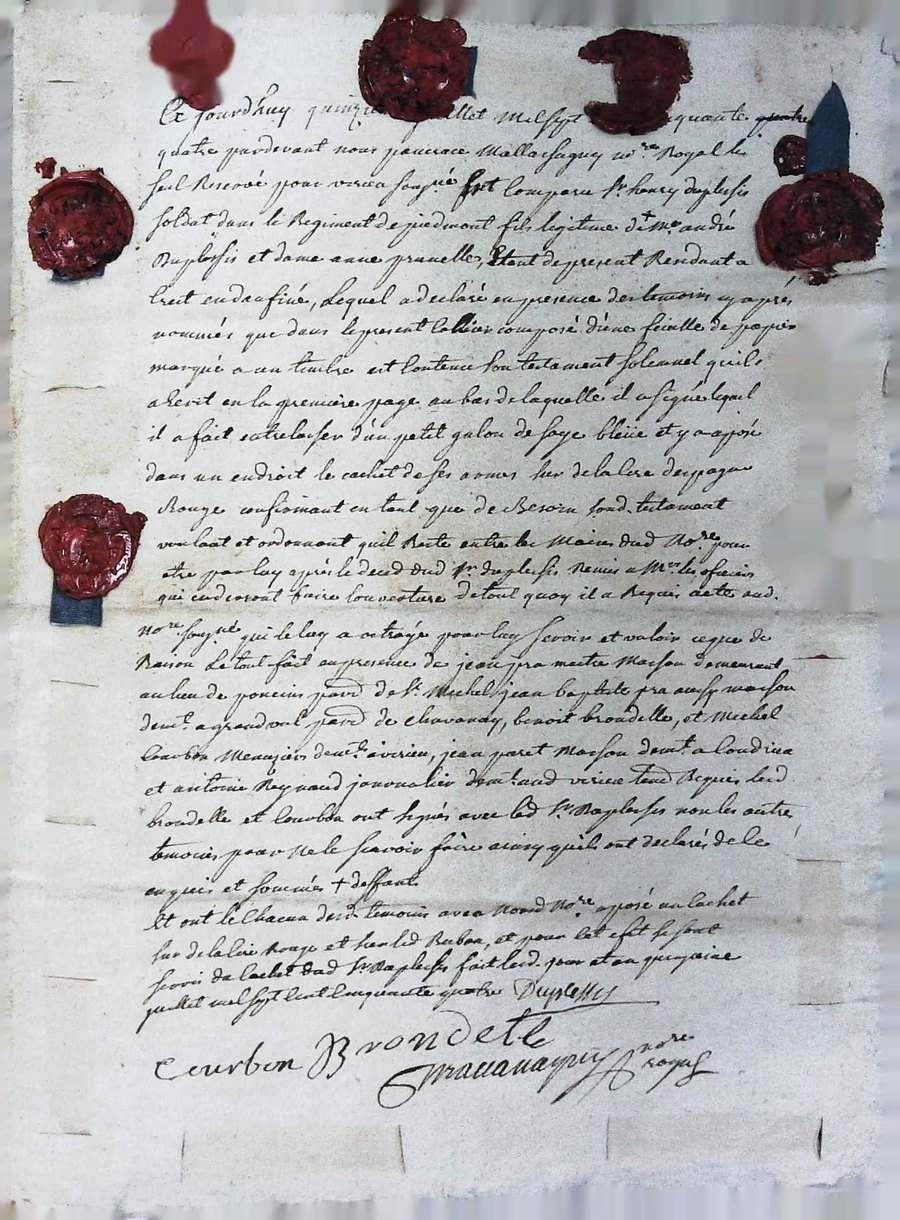 Ce Jourdhuy quinzie juillet Mil sept quante quatre
quatre pardevant nous pancrace Mallassagny no.re Royal les
soul Reservé pour virieu sousigné fut Comparu Sr. henry duplessis
soldat dans le Regiment de piedmont fils legitime d + Mre. andré
Duplessis et dame anne prunelles, Etant de present Rendant a
Creit en daufiné, Lequel a declaré en presence des temoins cy apres
nommés que dans le present Cahier composé d'ene feuille de papier
marqué a un timbre est Contenu son testament solemnel quil
a Ecrit en la premiere page au bas de laquelle il a signé lequel
il a fait entrelasser d'un petit galon de soye bleüe et y a aposé
dans un endroit le cachet de ses armes sur de la Cire despagne
Rouge confirmant en tant que de Besoin sond. testament
voulant et ordonnant quil Reste entre les Mains dud No.re pour
etre par luy après le deced dud Sr. duplessis Remis a Mrs. les oficiers
qui en devront faire louverture de tout quoy il a Requis acte aud.
No.re sousigné qui le luy a octroyé pour luy servir et valoir ceque de
Raison Le tout fait en presence de jean pra maitre Masson demeurant
au lieu de poncins paro. de St. Michel, jean baptiste pra aussy masson
demt. a grand val paro. de chavanay, benoit brondelle, et Michel
Courbon Menuziers demts. a virieu, jean paret Masson demt. a
et antoine Reynaud journalier demt. aud virieu Requis led
brondelle et Courbon ont signés avec led Sr. Duplessis non les autres
temoins pour Ne le scavoir faire ainsy quils ont declarés de le
enquis et sommés + deffants
Et ont le Chacun desd. temoins avec Nousd No.re aposé un Cachet
sur de la Cire Rouge et sur led Ruban, et pour Cet efet se sont
servis du Cachet dud Sr Duplessis fait led. jour et an quinzieme
juillet mil sept Cent Cinquante quatre Duplessis
Courbon Brondelle
Mallassagny no.re
royal